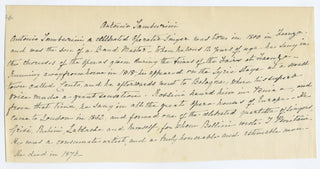 Antonio Tamburini
Antonio Tamburini a celebrated Operatic Singer was born in 1800 in Faenza,
and was the son of a Band Master. When he was 12 years of age he sung in
the chorusses of the operas given during the times of the Fairs at Faenza.
Running away from home in 1818 he appeared on the Lyric Stage in a small
town called Cento, and he afterwards went to Bologna, where his superb
voice made a great sensation. Rossini heard him in and
from that time he sung in all the great Opera houses of Europe. He
came to London in 1832, and formed one of the celebrated quartette of singers,
Grisi, Rubini, Lablache and himself, for whom Bellini wrote "I Puritani".
He was a consummate artist, and a truly honorable and estimable man.
He died in 1876.